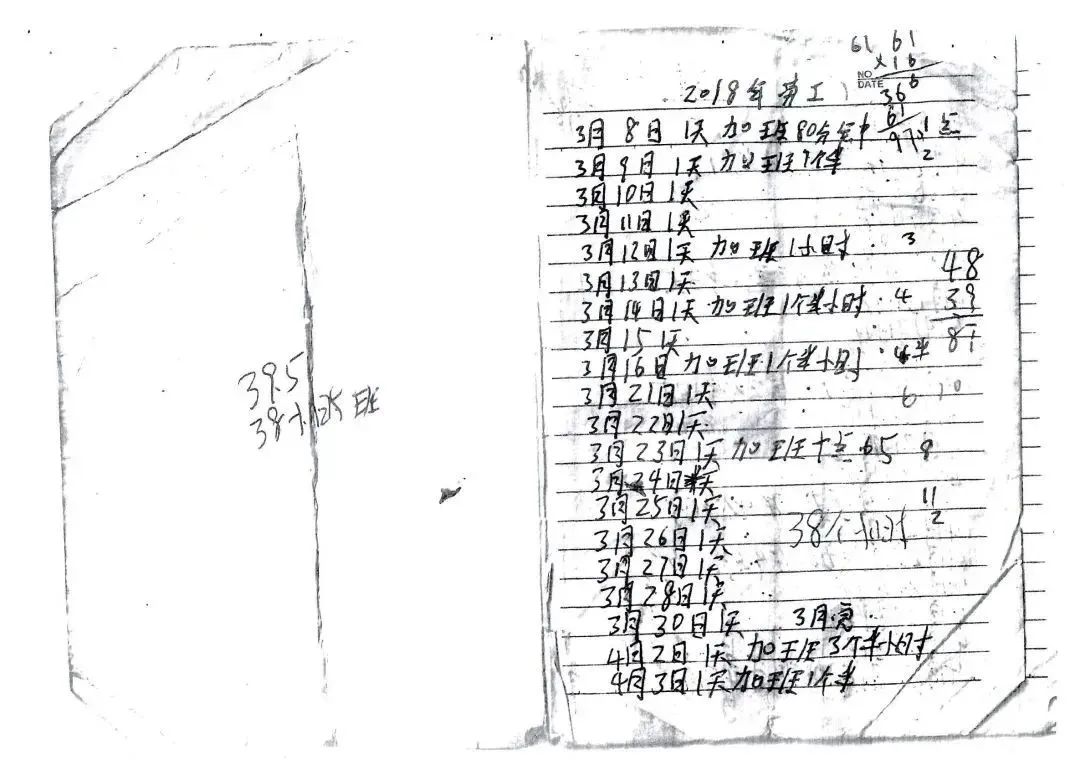 39.5
38小时 班
61 61
×16
NO
DATE
366
61
97
2018年 第工
3月8日 1天 加班80分钟
3月9日1天 加班1个半
2
3月10日1天
3月11日1天
3月12日1天 加班1小时 3
3月13日1天
48
3月14日1天 加班1个半小时 4
39
3月15 1天
87
3月16日 加班1个半小时 半
3月21日1天 6 10
3月22日1天
3月23日1天 加班十点 65 8
3月24日 天
3月25日1天 11
2
3月26日1天 38个小时
3月27日1天
3月28日1天
3月30日1天 3月
4月2日 1天 加班3个半小时
4月3日1天加班1个半